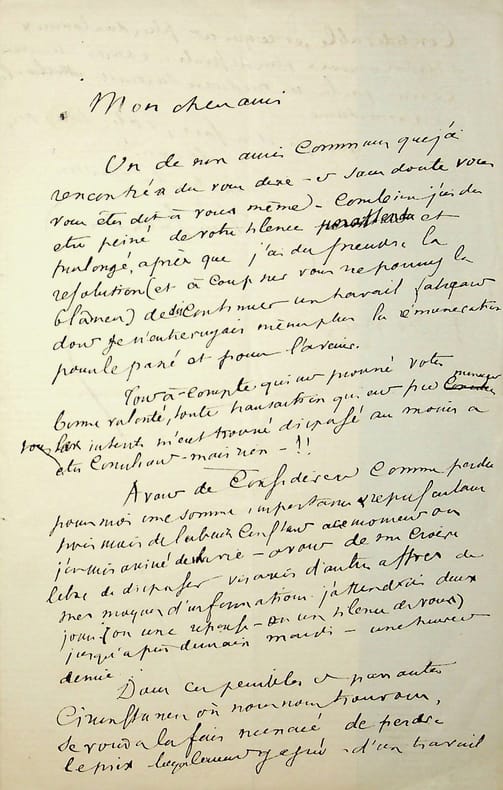 Mon cher ami
Un de nos amis Communs que j'ai
rencontré a du vous dire - et sans doute vous
vous êtes dit à vous même - Combien j'ai du
etre peiné de votre silence et
prolongé, apres que j'ai du prendre la
resolution (et à coup sur vous ne pouvez la
blâmer) de disContinuer un travail
dont je n'entrevoyais même plus la rémuneration
pour le passé et pour l'avenir.
Tout à-Compte qui eut prouvé votre
bonne volonté, toute transaction qui eut pu menager
tous les interets m'eut trouvé disposé au moins à
etre Conciliant - mais non - !!
Avant de Considérer Comme perdue
pour moi une somme importante representant
trois mois de labeur Constant au moment où
j'arrive de - avant de me Croire
libre de disposer vis à vis d'autres offres de
mes moyens d'information j'attendrai deux
jours (ou une reponse - ou un silence de vous)
jusqu'apres demain mardi - une heure et
demie
Dans les penibles et
Circonstances où nous nous trouvons,
se voir à la fois menacé de perdre
le prix legalement gagné d'un travail